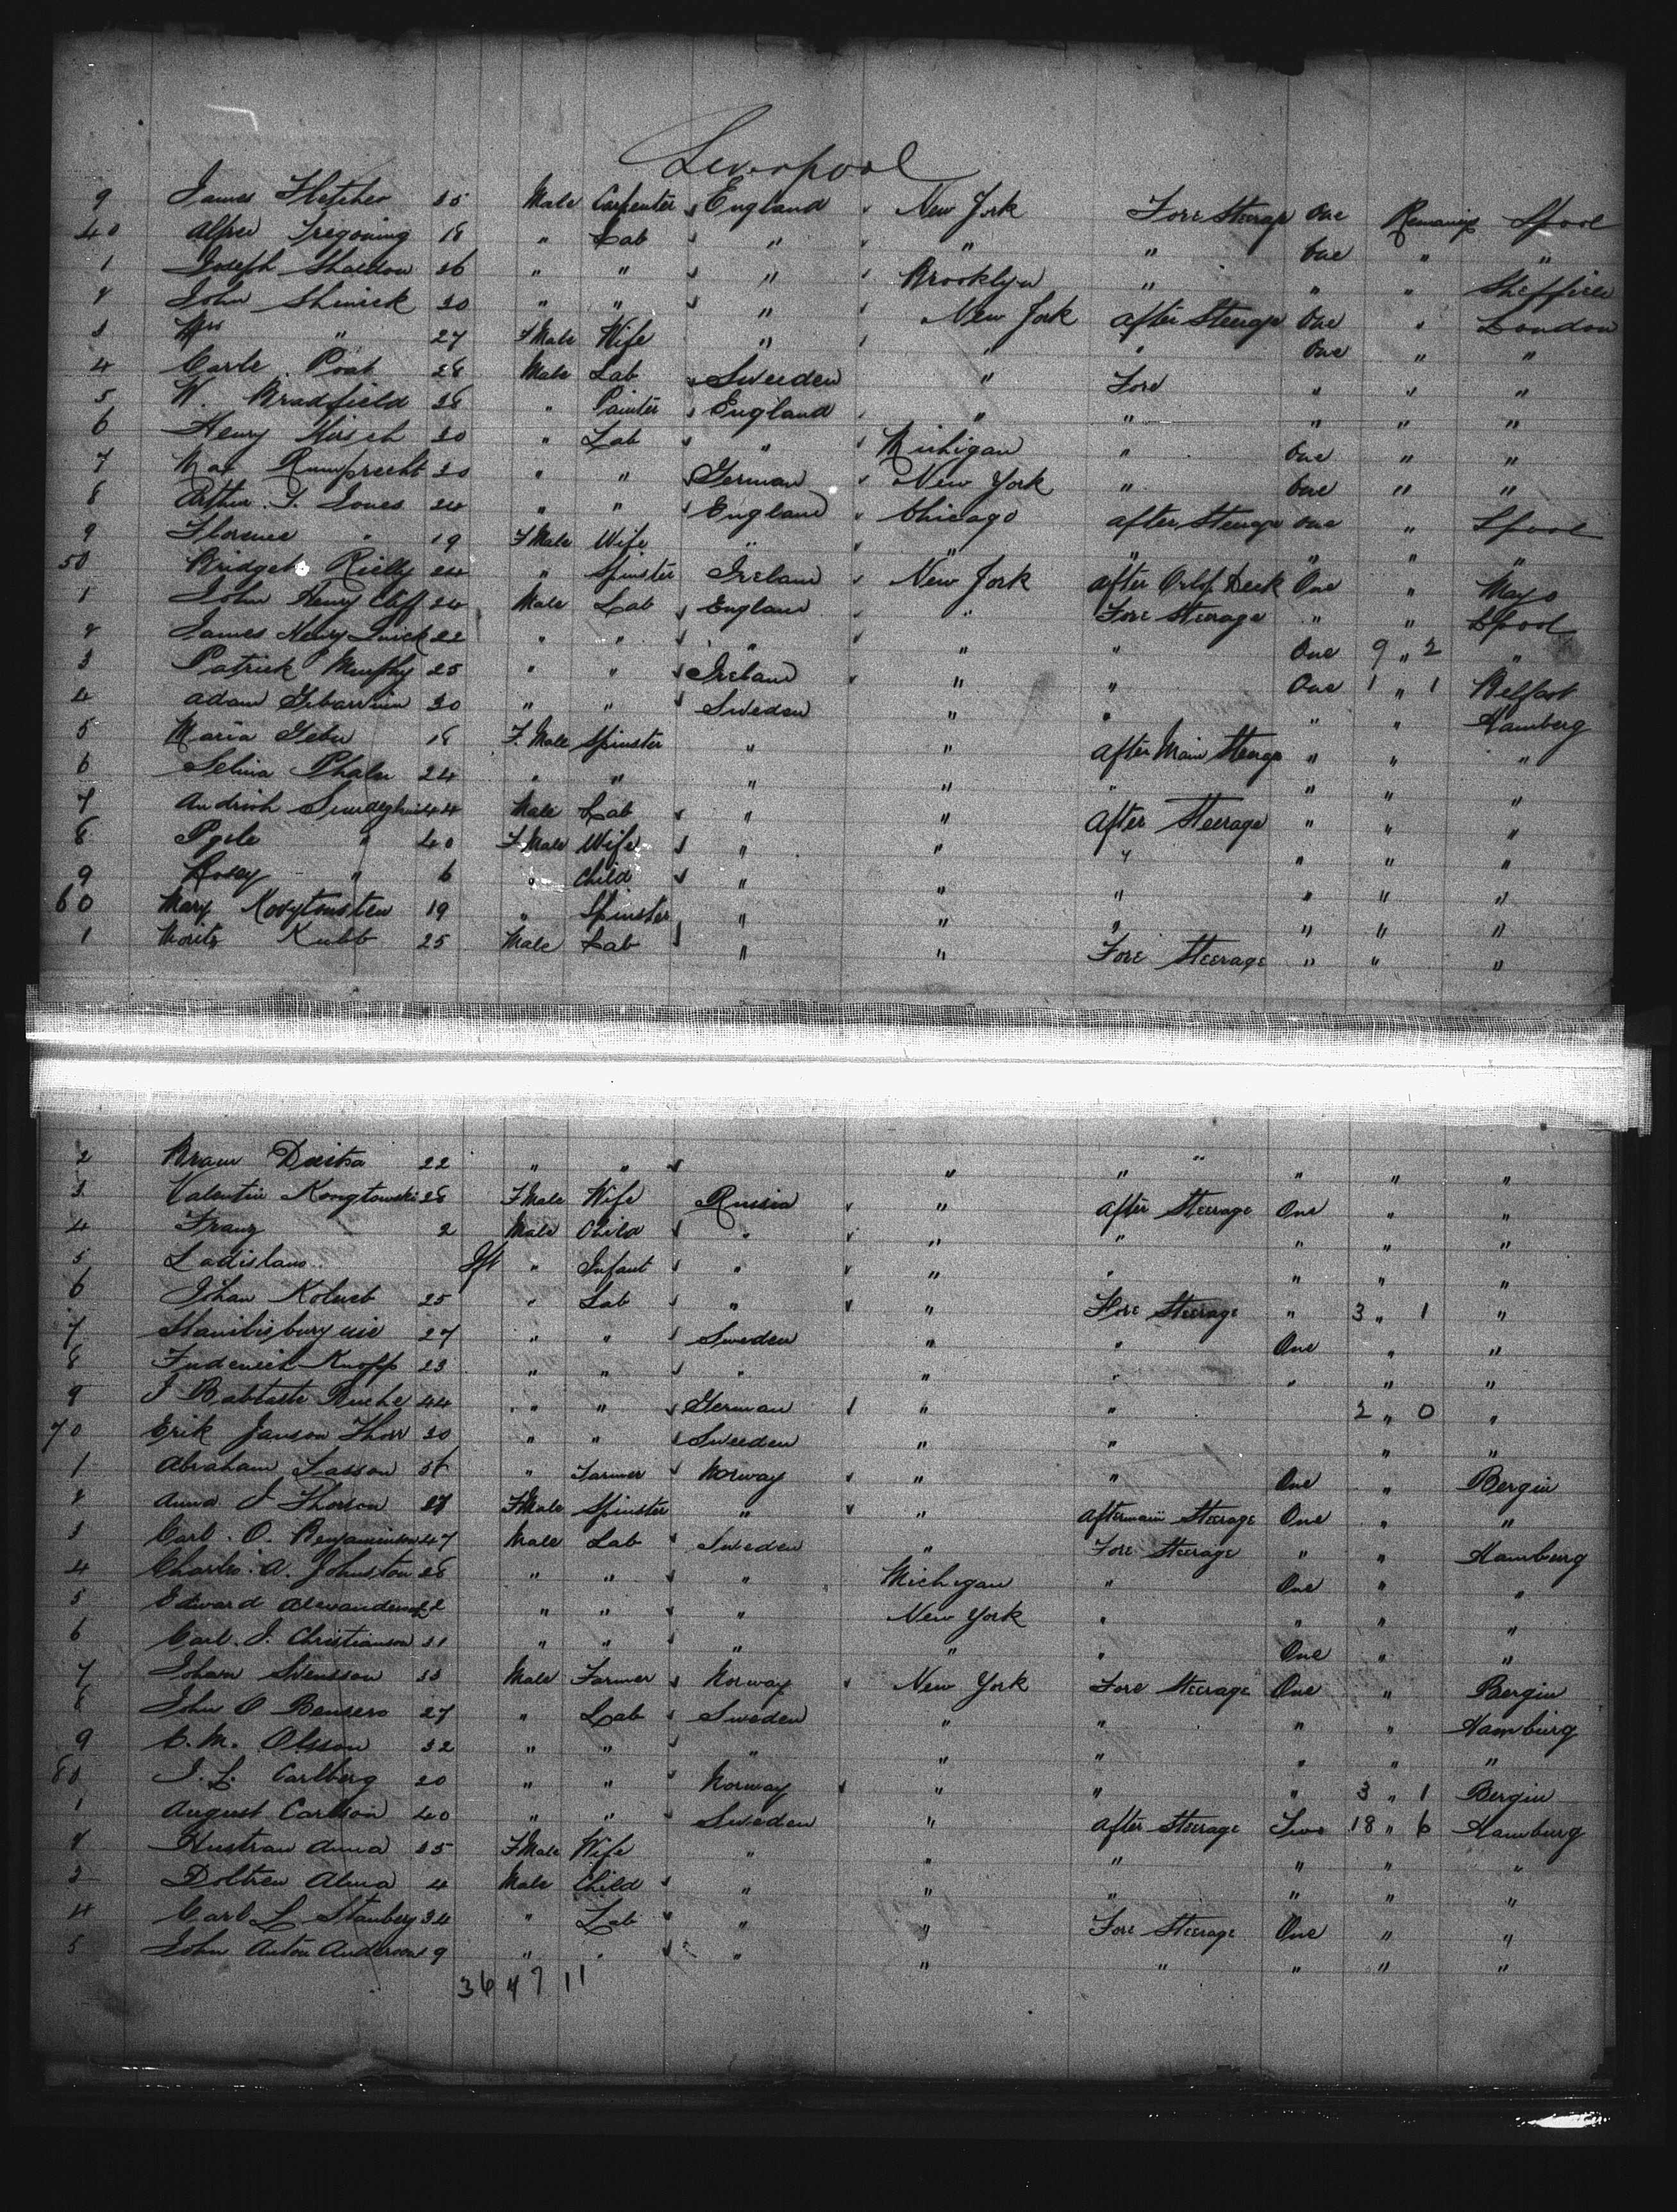 Liverpool
9 James Fletcher 35 Male Carpenter England New York Fore Steerage One Remaing Lpool
40 Alfred Tregoning 18 " Lab " " " One " "
1 Joseph Sheldon 36 " " " Brooklyn " " " Sheffield
2 John Shinick 30 " " " New York After Steerage One " London
3 Mrs " 27 FMale Wife " " " One " "
4 Carle 28 Male Lab Sweeden " Fore " " "
5 W. Bradfield 38 " Painter England " " " " "
6 Henry Hirsch 20 " Lab " Michigan " One " "
7 Max Rumprecht 20 " " German New York " One " "
8 Arthur. T. Jones 24 " " England Chicago After Steerage One " Lpool
9 Florence " 19 FMale Wife " " " " " "
50 Bridget Rielly 24 " Spinster Ireland New York After Orlop Deck One " Mayo
1 John Henry Cliff 24 Male Lab England " Fore Steerage " " Lpool
2 James Henry 22 " " " " " One 9 " 2 "
3 Patrick Murphy 25 " " Ireland " " One 1 " 1 Belfast
4 Adam 30 " " Sweden " " " " Hamberg
5 Maria 18 F. Male Spinster " " After Main Steerage " " "
6 Selina 24 " " " " " " " "
7 44 Male Lab " " After Steerage " " "
8 " 40 FMale Wife " " " " " "
9 Rosey " 6 " Child " " " " " "
60 Mary 19 " Spinster " " " " " "
1 Moritz Kubb 25 Male Lab " " Fore Steerage " " "
2 22 " " " " " " " "
3 Valentin Kongtowski 28 FMale Wife Russia " After Steerage One " "
4 Franz 2 Male Child " " " " " "
5 Ladislaus Ift " Infant " " " " " "
6 Johan 25 " Lab " " Fore Steerage " 3 " 1 "
7 27 " " Sweden " " One " "
8 Knopp 23 " " " " " " " "
9 J Babtaste 44 " " German " " 2 " 0 "
70 Erik Janson Thorr 20 " " Sweeden " " " "
1 Abraham Lasson " Farmer Norway " " One " Bergin
2 Anna J Thorson 27 FMale Spinster " " Aftermain Steerage One " "
3 Carl. O. Benjaminson 47 Male Lab Sweden " Fore Steerage " " Hamburg
4 Charles. A. Johnston 28 " " " Michigan " One " "
5 Edward Alexanderson 22 " " " New York " " " "
6 Carl. J. Christianson 31 " " " " " One " "
7 Johan Svensson 33 Male Farmer Norway New York Fore Steerage One " Bergin
8 John O 27 " Lab Sweden " " " " Hamburg
9 C. M. Olsson 32 " " " " " " " "
80 J. L. Carlberg 20 " " Norway " " " 3 " 1 Bergin
1 August Carlson 40 " " Sweden " After Steerage Two 18 " 6 Hamburg
2 Hustrau Anna 35 FMale Wife " " " " " "
3 Alma 4 Male Child " " " " " "
4 Carl L Stanberg 34 " Lab " " Fore Steerage One " "
5 John Anton Anderson 19 " " " " " " " "
36 4 7 11